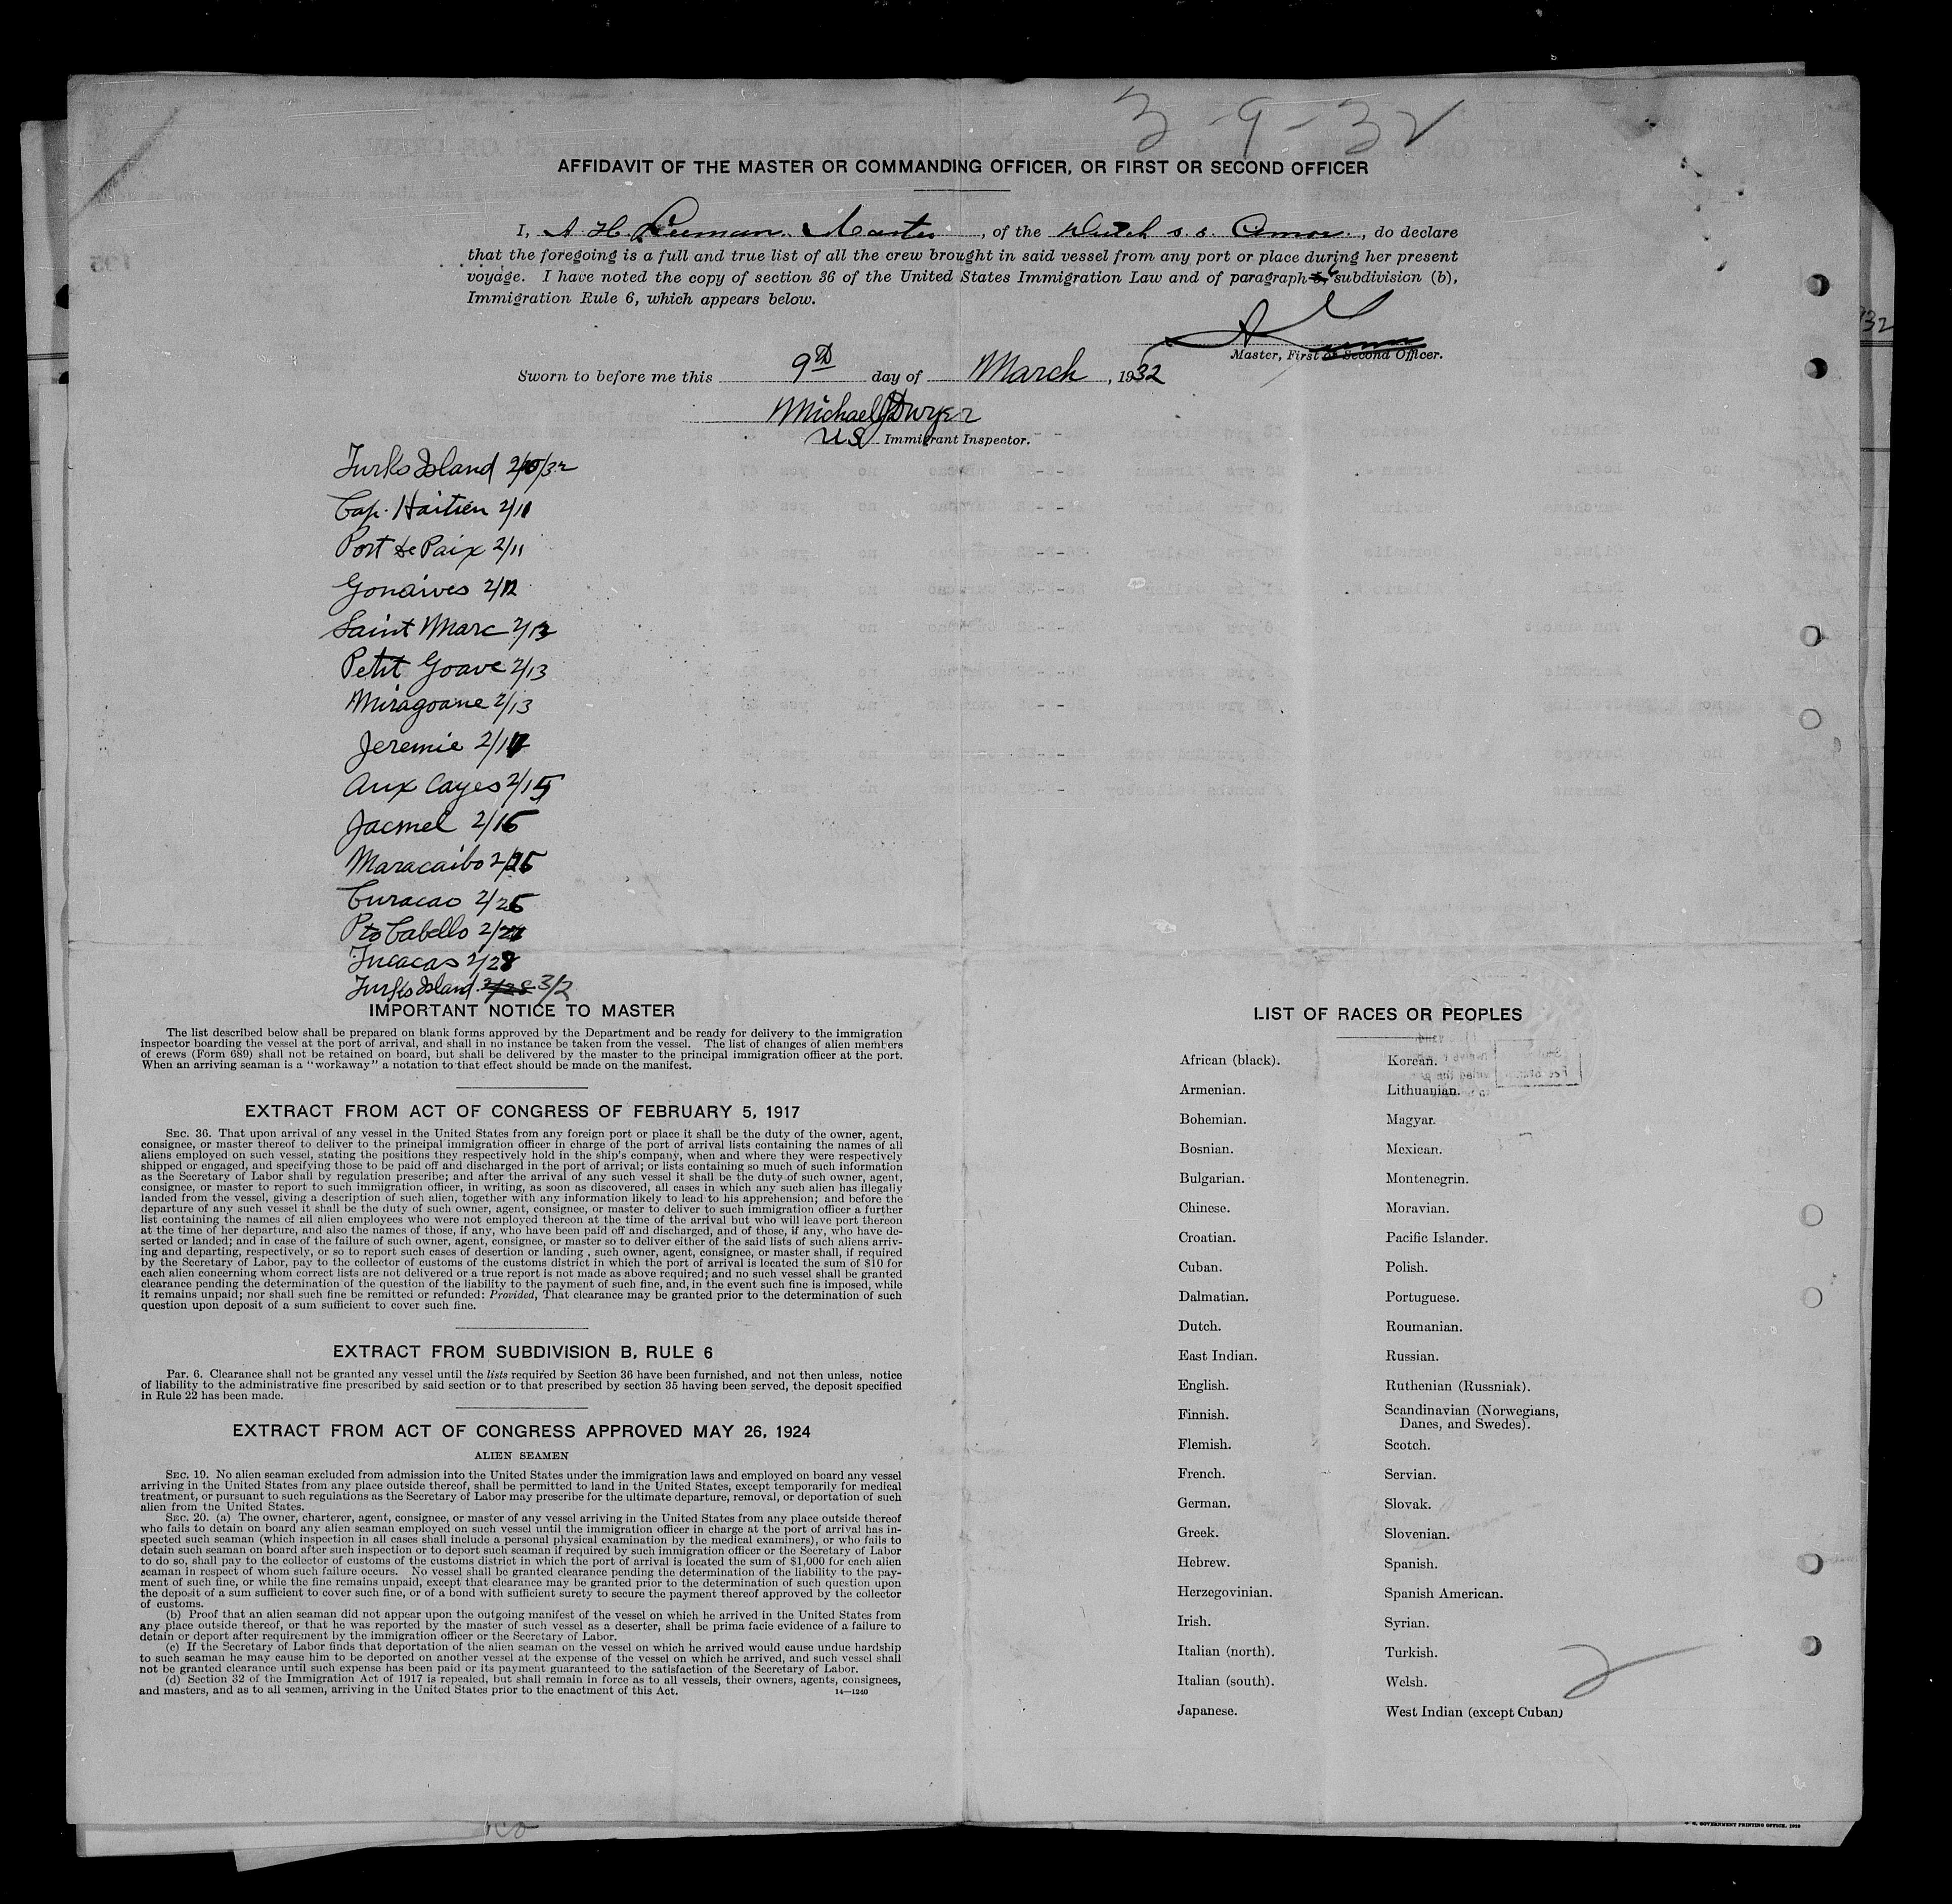 3-9-32
AFFIDAVIT OF THE MASTER OR COMMANDING OFFICER, OR FIRST OR SECOND OFFICER
I, A. H. Leeman. Master, of the Dutch s. s. Amor., do declare
that the foregoing is a full and true list of all the crew brought in said vessel from any port or place during her present
voyage. I have noted the copy of section 36 of the United States Immigration Law and of paragraph 6 subdivision (b),
Immigration Rule 6, which appears below.
Master, First or Second Officer.
Sworn to before me this 9th day of March, 1932
Michael J Dwyer
US Immigrant Inspector.
Turks Island 2/10/32
Cap. Haitien 2/11
Port de Paix 2/11
Gonaives 2/12
Saint Marc 2/13
Petit Goave 2/13
Miragoane 2/13
Jeremie 2/14
Aux Cayes 2/15
Jacmel 2/16
Maracaibo 2/25
Curacao 2/26
Pto Cabello 2/27
Tucacas 2/28
Turks Island 2/28 3/2
IMPORTANT NOTICE TO MASTER
The list described below shall be prepared on blank forms approved by the Department and be ready for delivery to the immigration
inspector boarding the vessel at the port of arrival, and shall in no instance be taken from the vessel. The list of changes of alien members
of crews (Form 689) shall not be retained on board, but shall be delivered by the master to the principal immigration officer at the port.
When an arriving seaman is a "workaway" a notation to that effect should be made on the manifest.
EXTRACT FROM ACT OF CONGRESS OF FEBRUARY 5, 1917
SEC. 36. That upon arrival of any vessel in the United States from any foreign port or place it shall be the duty of the owner, agent,
consignee, or master thereof to deliver to the principal immigration officer in charge of the port of arrival lists containing the names of all
aliens employed on such vessel, stating the positions they respectively hold in the ship's company, when and where they were respectively
shipped or engaged, and specifying those to be paid off and discharged in the port of arrival; or lists containing so much of such information
as the Secretary of Labor shall by regulation prescribe; and after the arrival of any such vessel it shall be the duty of such owner, agent,
consignee, or master to report to such immigration officer, in writing, as soon as discovered, all cases in which any such alien has illegally
landed from the vessel, giving a description of such alien, together with any information likely to lead to his apprehension; and before the
departure of any such vessel it shall be the duty of such owner, agent, consignee, or master to deliver to such immigration officer a further
list containing the names of all alien employees who were not employed thereon at the time of the arrival but who will leave port thereon
at the time of her departure, and also the names of those, if any, who have been paid off and discharged, and of those, if any, who have de-
serted or landed; and in case of the failure of such owner, agent, consignee, or master so to deliver either of the said lists of such aliens arriv-
ing and departing, respectively, or so to report such cases of desertion or landing , such owner, agent, consignee, or master shall, if required
by the Secretary of Labor, pay to the collector of customs of the customs district in which the port of arrival is located the sum of $10 for
each alien concerning whom correct lists are not delivered or a true report is not made as above required; and no such vessel shall be granted
clearance pending the determination of the question of the liability to the payment of such fine, and, in the event such fine is imposed, while
it remains unpaid; nor shall such fine be remitted or refunded: Provided, That clearance may be granted prior to the determination of such
question upon deposit of a sum sufficient to cover such fine.
EXTRACT FROM SUBDIVISION B, RULE 6
PAR. 6. Clearance shall not be granted any vessel until the lists required by Section 36 have been furnished, and not then unless, notice
of liability to the administrative fine prescribed by said section or to that prescribed by section 35 having been served, the deposit specified
in Rule 22 has been made.
EXTRACT FROM ACT OF CONGRESS APPROVED MAY 26, 1924
ALIEN SEAMEN
SEC. 19. No alien seaman excluded from admission into the United States under the immigration laws and employed on board any vessel
arriving in the United States from any place outside thereof, shall be permitted to land in the United States, except temporarily for medical
treatment, or pursuant to such regulations as the Secretary of Labor may prescribe for the ultimate departure, removal, or deportation of such
alien from the United States.
SEC. 20. (a) The owner, charterer, agent, consignee, or master of any vessel arriving in the United States from any place outside thereof
who fails to detain on board any alien seaman employed on such vessel until the immigration officer in charge at the port of arrival has in-
spected such seaman (which inspection in all cases shall include a personal physical examination by the medical examiners), or who fails to
detain such seaman on board after such inspection or to deport such seaman if required by such immigration officer or the Secretary of Labor
to do so, shall pay to the collector of customs of the customs district in which the port of arrival is located the sum of $1,000 for each alien
seaman in respect of whom such failure occurs. No vessel shall be granted clearance pending the determination of the liability to the pay-
ment of such fine, or while the fine remains unpaid, except that clearance may be granted prior to the determination of such question upon
the deposit of a sum sufficient to cover such fine, or of a bond with sufficient surety to secure the payment thereof approved by the collector
of customs.
(b) Proof that an alien seaman did not appear upon the outgoing manifest of the vessel on which he arrived in the United States from
any place outside thereof, or that he was reported by the master of such vessel as a deserter, shall be prima facie evidence of a failure to
detain or deport after requirement by the immigration officer or the Secretary of Labor.
(c) If the Secretary of Labor finds that deportation of the alien seaman on the vessel on which he arrived would cause undue hardship
to such seaman he may cause him to be deported on another vessel at the expense of the vessel on which he arrived, and such vessel shall
not be granted clearance until such expense has been paid or its payment guaranteed to the satisfaction of the Secretary of Labor.
(d) Section 32 of the Immigration Act of 1917 is repealed, but shall remain in force as to all vessels, their owners, agents, consignees,
and masters, and as to all seamen, arriving in the United States prior to the enactment of this Act.
14—1240
LIST OF RACES OR PEOPLES
African (black).
Armenian.
Bohemian.
Bosnian.
Bulgarian.
Chinese.
Croatian.
Cuban.
Dalmatian.
Dutch.
East Indian.
English.
Finnish.
Flemish.
French.
German.
Greek.
Hebrew.
Herzegovinian.
Irish.
Italian (north).
Italian (south).
Japanese.
Korean.
Lithuanian.
Magyar.
Mexican.
Montenegrin.
Moravian.
Pacific Islander.
Polish.
Portuguese.
Roumanian.
Russian.
Ruthenian (Russniak).
Scandinavian (Norwegians,
Danes, and Swedes).
Scotch.
Servian.
Slovak.
Slovenian.
Spanish.
Spanish American.
Syrian.
Turkish.
Welsh.
West Indian (except Cuban)
2
GOVERNMENT PRINTING OFFICE